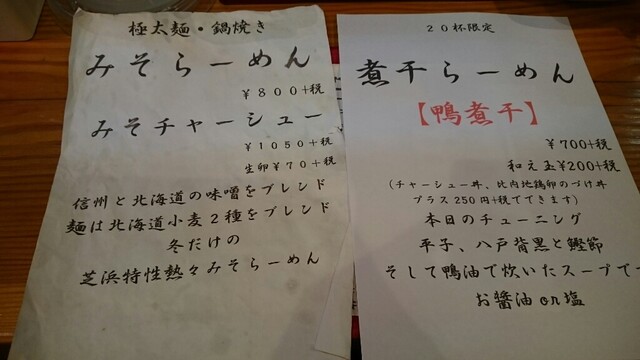 極太麺・鍋焼き
みそらーめん
¥800+税
みそチャーシュー
¥1050+税
生卵¥70+税
信州と北海道の味噌をブレンド
麺は北海道小麦2種をブレンド
冬だけの
芝浜特性熱々みそらーめん
20杯限定
煮干らーめん
【鴨煮干】
¥700+税
和え玉¥200+税
(チャーシュー丼、比内地鶏卵のづけ丼
プラス250円+税でできます)
本日のチューニング
平子、八戸背黒と鰹節
そして鴨油で炊いたスープで
お醤油or塩